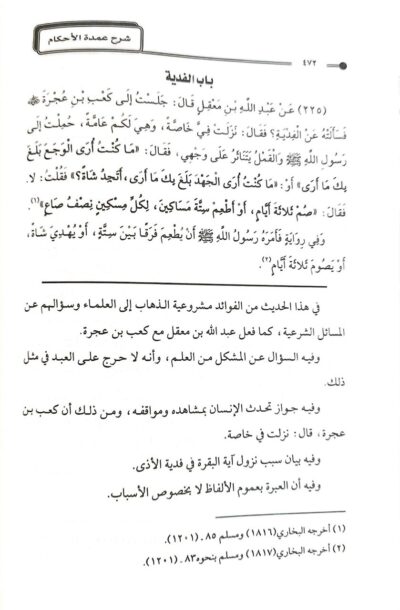 شرح عمدة الأحكام
٤٧٢
باب الفدية
(٢٢٥) عَنْ عَبْدِ اللَّهِ بْنِ مَعْقِلٍ قَالَ: جَلَسْتُ إِلَى كَعْبِ بْنِ عُجْرَةَ ﵁
فَسَأَلْتُهُ عَنْ الْفِدْيَةِ؟ فَقَالَ: نَزَلَتْ فِيَّ خَاصَّةً، وَهِيَ لَكُمْ عَامَّةً، حُمِلْتُ إِلَى
رَسُولِ اللَّهِ ﷺ وَالْقَمْلُ يَتَنَاثَرُ عَلَى وَجْهِي، فَقَالَ: «مَا كُنْتُ أُرَى الْوَجَعَ بَلَغَ
بِكَ مَا أَرَى» أَوْ: «مَا كُنْتُ أُرَى الْجَهْدَ بَلَغَ بِكَ مَا أَرَى، أَتَجِدُ شَاةً؟» فَقُلْتُ: لا.
فَقَالَ: «صُمْ ثَلاثَةَ أَيَّامٍ، أَوْ أَطْعِمْ سِتَّةَ مَسَاكِينَ، لِكُلِّ مِسْكِينٍ نِصْفُ صَاعٍ»(١).
وَفِي رِوَايَةٍ فَأَمَرَهُ رَسُولُ اللَّهِ ﷺ أَنْ يُطْعِمَ فَرَقًا بَيْنَ سِتَّةٍ، أَوْ يُهْدِيَ شَاةً،
أَوْ يَصُومَ ثَلاثَةَ أَيَّامٍ(٢).
في هذا الحديث من الفوائد مشروعية الذهاب إلى العلماء وسؤالهم عن
المسائل الشرعية، كما فعل عبد الله بن معقل مع كعب بن عجرة.
وفيه السؤال عن المشكل من العلم، وأنه لا حرج على العبد في مثل
ذلك.
وفيه جواز تحدث الإنسان بمشاهده ومواقفه، ومن ذلك أن كعب بن
عجرة، قال: نزلت في خاصة.
وفيه بيان سبب نزول آية البقرة في فدية الأذى.
وفيه أن العبرة بعموم الألفاظ لا بخصوص الأسباب.
(١) أخرجه البخاري(١٨١٦) ومسلم ٨٥ ـ (١٢٠١).
(٢) أخرجه البخاري(١٨١٧) ومسلم بنحوه٨٣ ـ (١٢٠١).